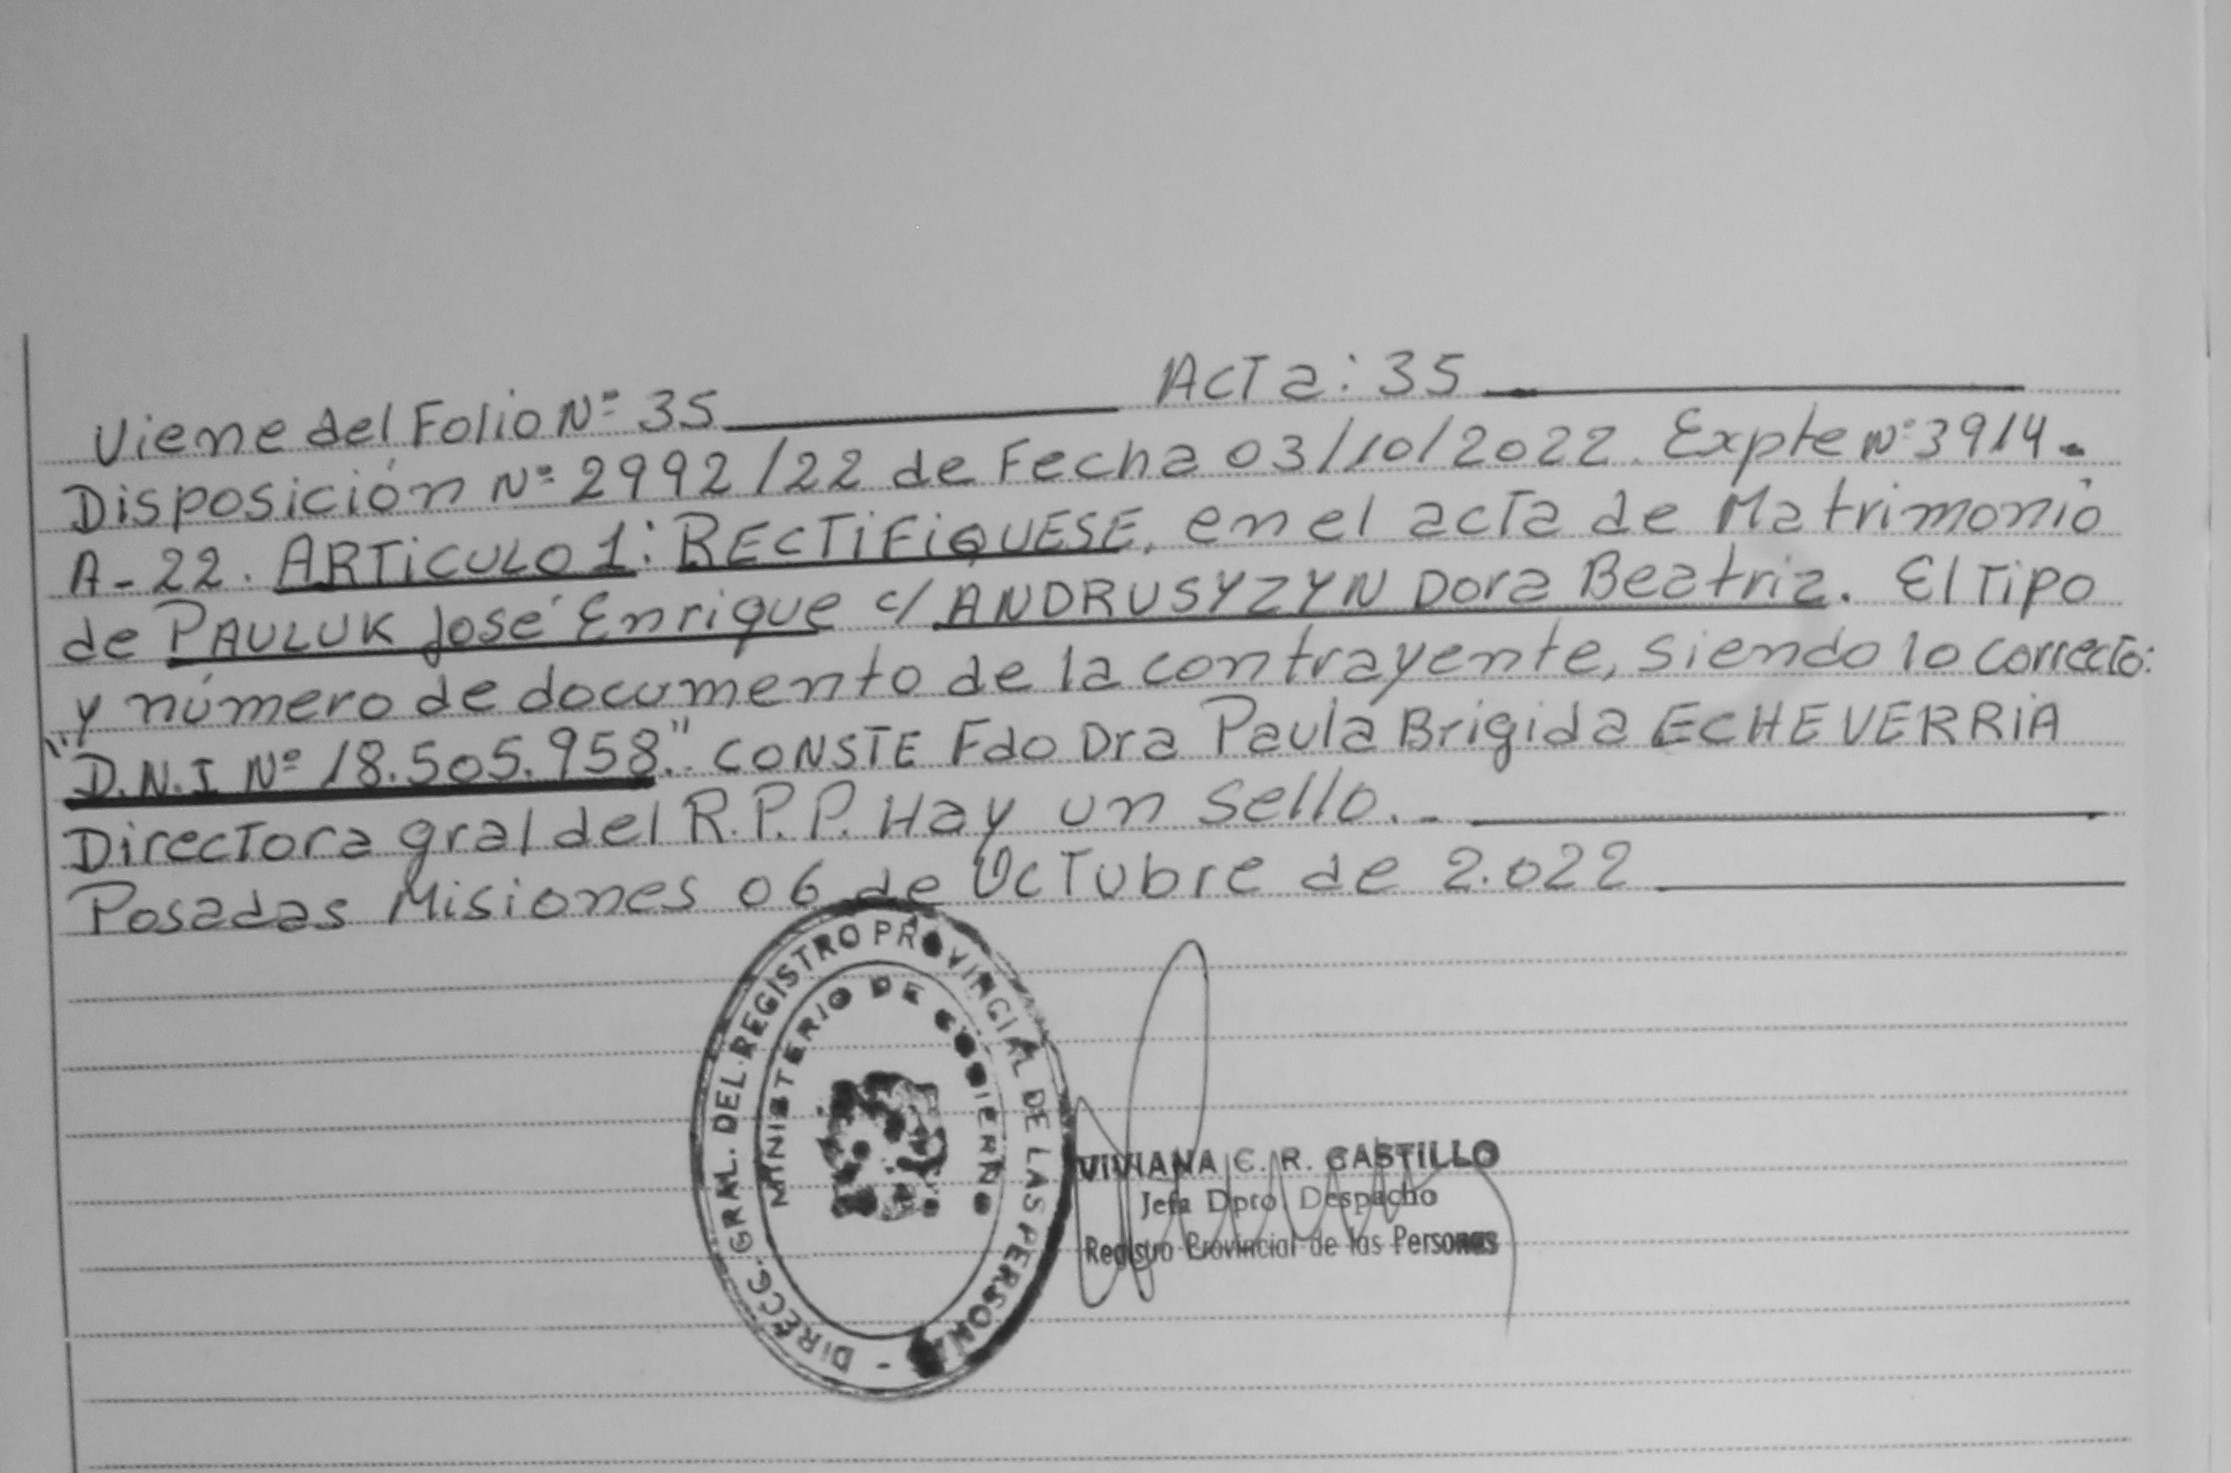 Viene del Folio Nº 35 Acta: 35
Disposición Nº 2992/22 de Fecha 03/10/2022. Expte Nº 3914-
A-22. ARTiCULO 1: RECTiFiQUESE, en el acta de Matrimonio
de PAULUK José Enrique c/ ANDRUSYZYN Dora Beatriz. El Tipo
y número de documento de la contrayente, siendo lo correcto:
"D.N.I Nº 18.505.958". CONSTE Fdo Dra Paula Brigida ECHEVERRiA
Directora gral del R.P.P. Hay un sello.-
Posadas Misiones 06 de Octubre de 2.022
DIRECC. GRAL. DEL REGISTRO PROVINCIAL DE LAS PERSONAS -
MINISTERIO DE GOBIERNO
VIVIANA C. R. CASTILLO
Jefa Dpto Despacho
Registro Provincial de las Personas